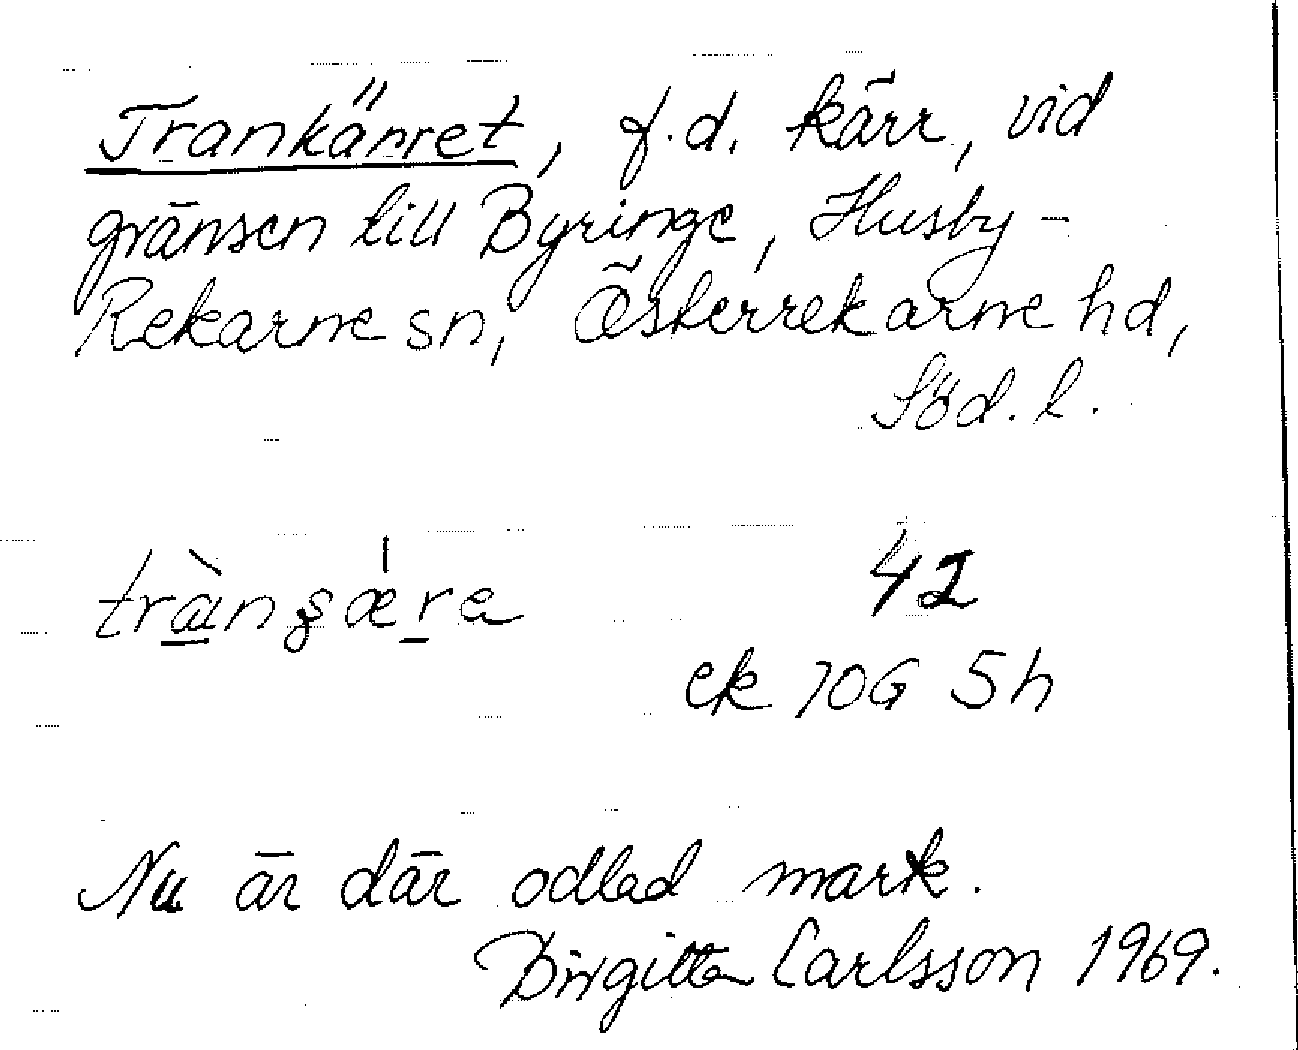 Trankärret, f.d. kärr, vid
gränsen till Byringe, Husby-
Rekarne sn, Österrekarne hd,
Söd. l.
42
ek 10G 5h
Nu är där odlad mark.
Birgitta Carlsson 1969.